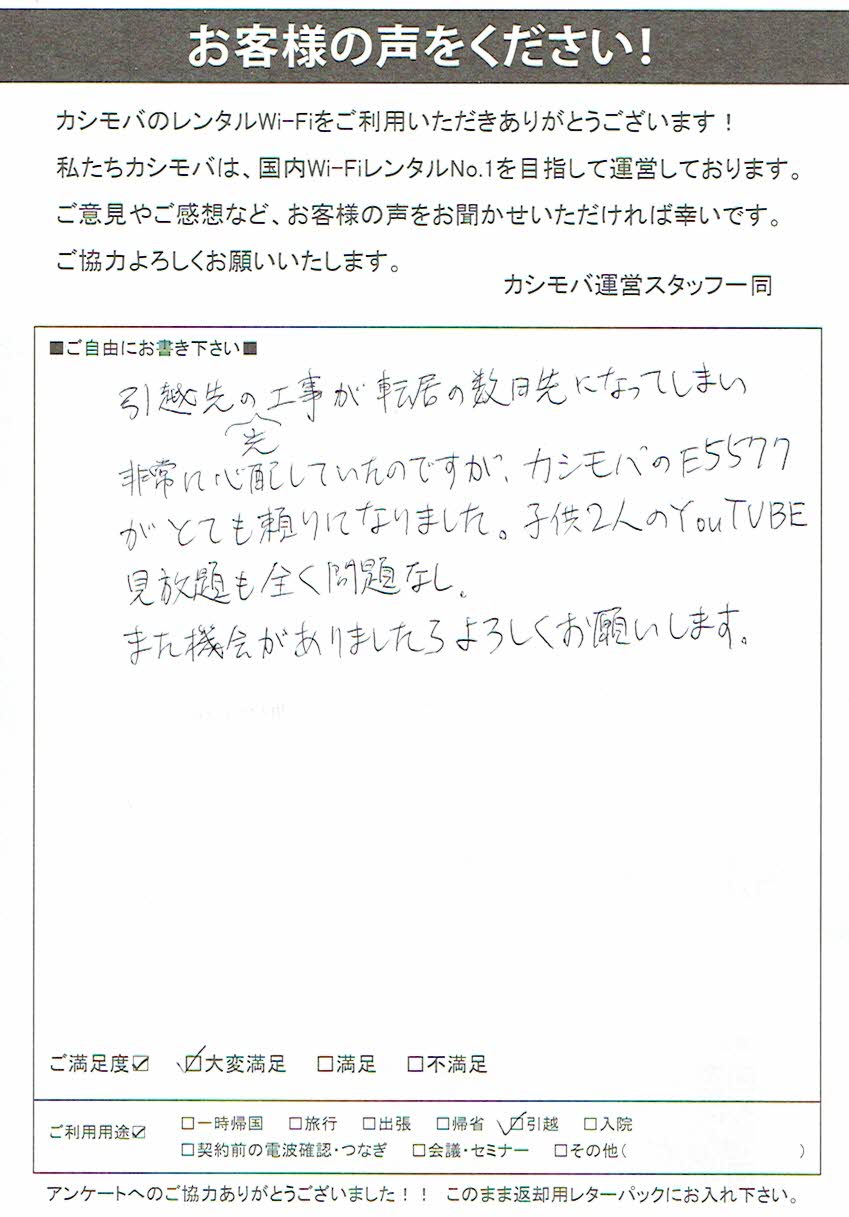 お客様の声をください!
カシモバのレンタルWi-Fiをご利用いただきありがとうございます！
私たちカシモバは、国内Wi-FiレンタルNo.1を目指して運営しております。
ご意見やご感想など、お客様の声をお聞かせいただければ幸いです。
ご協力よろしくお願いいたします。
カシモバ運営スタッフ一同
■ご自由にお書き下さい■
引越先の工事が転居の数日先になってしまい
先
非常に心配していたのですが、カシモバのE5577
がとても頼りになりました。子供2人のYouTUBE
見放題も全く問題なし。
また機会がありましたらよろしくお願いします。
ご満足度☑ ☑大変満足 □満足 □不満足
ご利用用途☑ □一時帰国 □旅行 □出張 □帰省 ☑引越 □入院
□契約前の電波確認・つなぎ □会議・セミナー □その他( )
アンケートへのご協力ありがとうございました！！ このまま返却用レターパックにお入れ下さい。